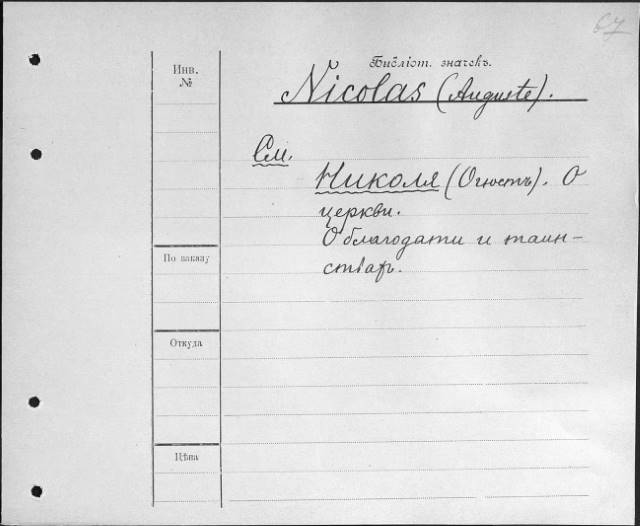 67
Библіот. значекъ.
Инв.
№
Nicolas (Auguste).
См.
Николя (Огюстъ). О
церкви.
О благодати и таин-
ствахъ.
По заказу
Откуда
Цѣна